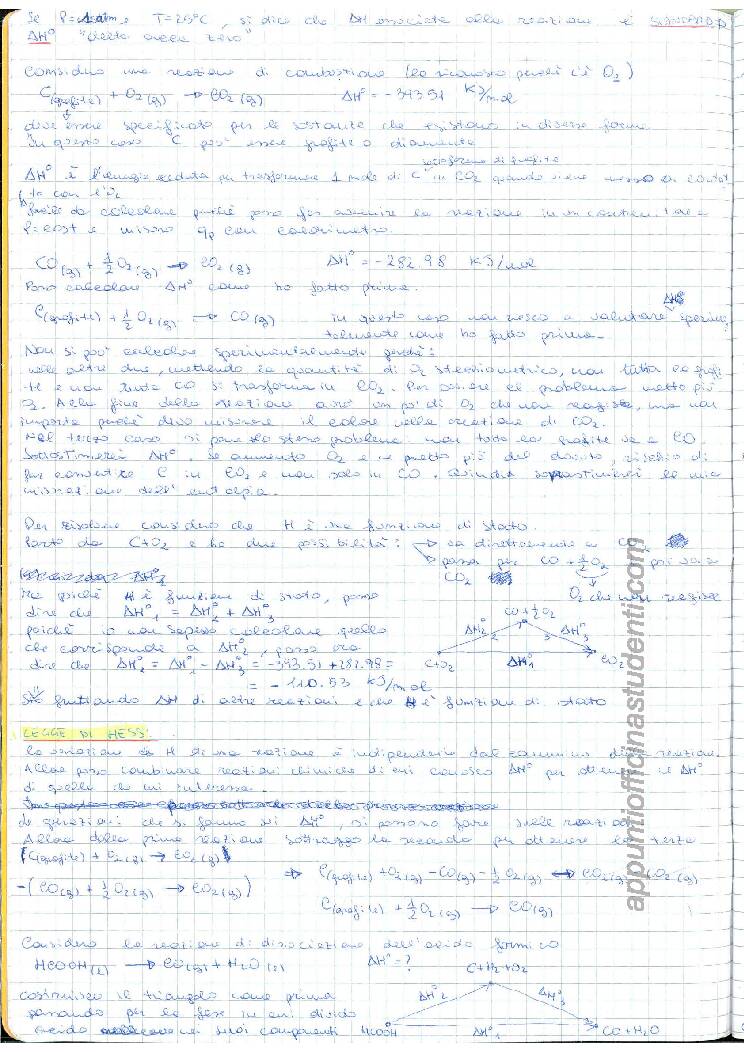 Se P=1atm e T=25°C, si dice che ΔH associata alla reazione è STANDARD
ΔH° "delta acca zero"
Considero una reazione di combustione (la riconosco perché c'è O₂)
C(grafite) + O₂(g) → CO₂(g) ΔH° = -393.51 KJ/mol
deve essere specificato per le sostanze che esistono in diverse forme
In questo caso C può essere grafite o diamante
sottoforma di grafite
ΔH° è l'energia ceduta per trasformare 1 mole di C in CO₂ quando viene messo a contat
to con l'O₂
facile da calcolare perché posso far avvenire la reazione in un
P=cost e misuro qp con calorimetro.
CO(g) + ½O₂(g) → CO₂(g) ΔH° = -282.98 KJ/mol
Posso calcolare ΔH° come ho fatto prima.
C(grafite) + ½O₂(g) → CO(g) in questo caso non riesco a valutare ΔH° sperimen
talmente come ho fatto prima.
Non si può calcolare sperimentalmente perché:
nelle altre due, mettendo la quantità di O₂ stechiometrico, non tutta la grafi
te e non tutto CO si trasforma in CO₂. Per ovviare al problema metto più
O₂. Alla fine della reazione avrò un po' di O₂ che non reagisce, ma non
importa perché devo misurare il calore nella creazione di CO₂.
Nel terzo caso si pone lo stesso problema: non tutta la grafite va a CO.
Sottostimerei ΔH°. Se aumento O₂ e ne metto più del dovuto, rischio di
far convertire C in CO₂ e non solo in CO. Quindi sovrastimerei la mia
misurazione dell'entalpia.
Per risolvere considero che H è una funzione di stato.
Parto da C+O₂ e ho due possibilità: → va direttamente a CO₂
→ passa per CO + ½O₂ poi va a
CO₂
O₂ che non reagisce
Ma poiché H è funzione di stato, posso
dire che ΔH°₁ = ΔH°₂ + ΔH°₃
CO+½O₂
ΔH°₂ ΔH°₃
C+O₂ ΔH°₁ CO₂
poiché io non sapevo calcolare quello
che corrisponde a ΔH°₂, posso ora
dire che ΔH°₂ = ΔH°₁ - ΔH°₃ = -393.51 + 282.98 =
= -110.53 KJ/mol
Sto sfruttando ΔH di altre reazioni e che H è funzione di stato
LEGGE DI HESS:
la variazione di H di una reazione è indipendente dal cammino della reazione.
Allora posso combinare reazioni chimiche di cui conosco ΔH° per ottenere il ΔH°
di quella che mi interessa.
Le operazioni che si fanno sui ΔH°, si possono fare sulle reazioni
Allora dalla prima reazione sottraggo la seconda per ottenere la terza
(C(grafite) + O₂(g) → CO₂(g))
-(CO(g) + ½O₂(g) → CO₂(g))
⇒ C(grafite) + O₂(g) - CO(g) - ½O₂(g) → CO₂(g) - CO₂(g)
C(grafite) + ½O₂(g) → CO(g)
Considero la reazione di dissociazione dell'acido formico
HCOOH(l) → CO(g) + H₂O(l) ΔH° = ?
C+H₂+O₂
ΔH°₂ ΔH°₃
HCOOH ΔH°₁ CO+H₂O
costruisco il triangolo come prima
passando per la fase in cui divido
nei suoi componenti
appuntiofficinastudenti.com